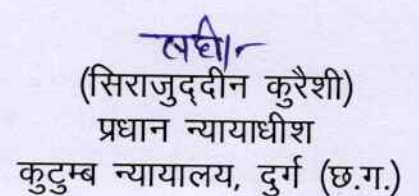 सही/-
(सिराजुद्दीन कुरैशी)
प्रधान न्यायाधीश
कुटुम्ब न्यायालय, दुर्ग (छ.ग.)